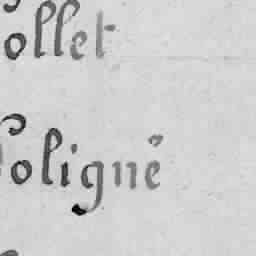 ollet
oligné